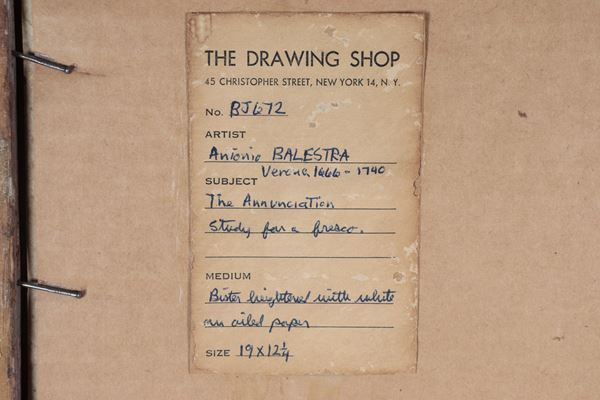 THE DRAWING SHOP
45 CHRISTOPHER STREET, NEW YORK 14, N. Y.
No. BJ672
ARTIST
Antonio BALESTRA
Verona, 1666 - 1740
SUBJECT
The Annunciation
Study for a fresco.
MEDIUM
Bister heightened with white
on oiled paper
SIZE 19 X 12 1/4